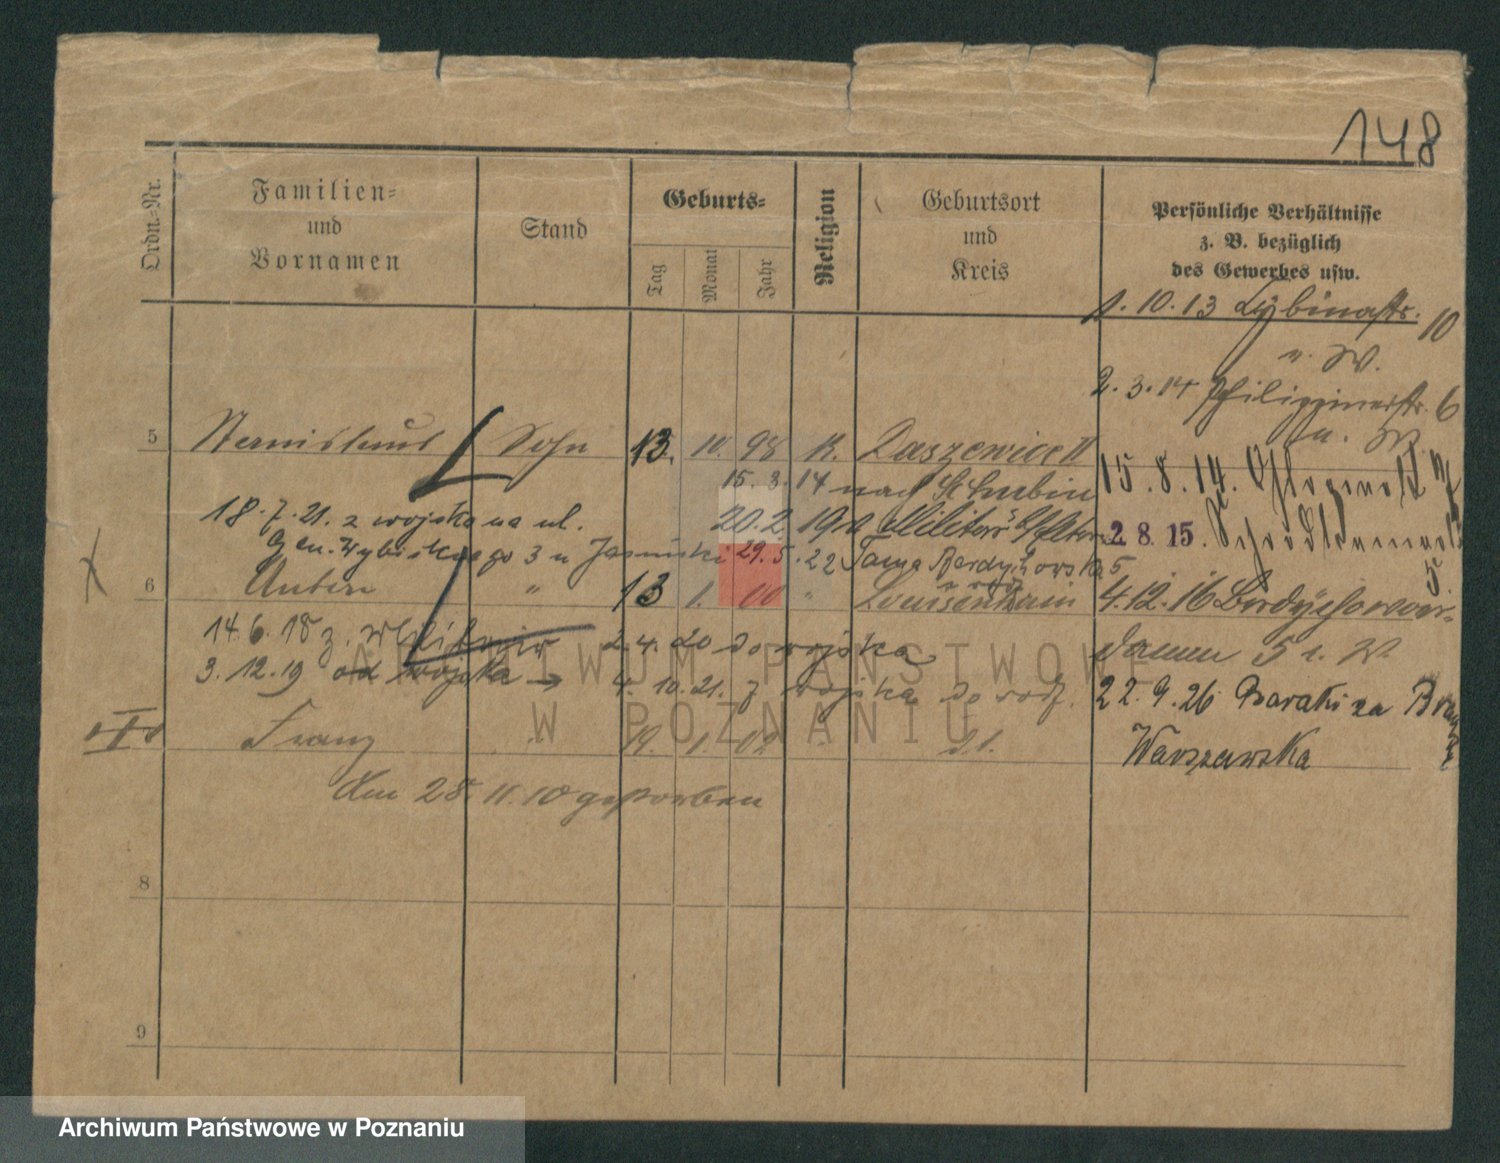 148
Ordn.-Nr.
Familien-
und
Vornamen
Stand
Geburts-
Tag
Monat
Jahr
Religion
Geburtsort
und
Kreis
Persönliche Verhältnisse
z. B. bezüglich
des Gewerbes usw.
1. 10. 13 Lybinastr. 10
u. W.
2. 3. 14 Philippinerstr. 6
u. W.
5 Stanislaus Sohn 13. 10. 98 K. Daszewice II
15. 3. 14 nach Schubin
15. 8. 14.
18. 7. 21. z wojska na ul.
20. 2. 19
2 8. 15.
Gen. Wybickiego 3 u Jasinski 29. 5. 22 Tama Berdychowska 5
6 Anton " 13 1. 00 " Louisenhain
4. 12. 16 Berdychower-
damm 5 u. W.
14. 6. 18 z.
2. 4. 20 do wojska
3. 12. 19 od wojska → 4. 10. 21. z wojska do rodz.
22. 9. 26 Baraki za
Warszawska
Franz " 19. 1. 02 "
den 28. 11. 10 gestorben
8
9
ARCHIWUM PAŃSTWOWE
W POZNANIU
Archiwum Państwowe w Poznaniu